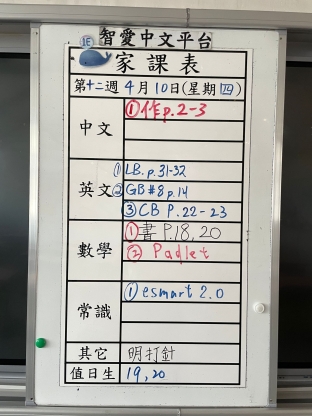 智愛中文平台
1E
家課表
第十二週 4月10日(星期四)
中文 ①作p.2-3
英文 ①LB.p.31-32
②GB#8p.14
③CB P.22-23
數學 ①書P.18,20
②Padlet
常識 ①esmart 2.0
其它 明打針
值日生 19,20